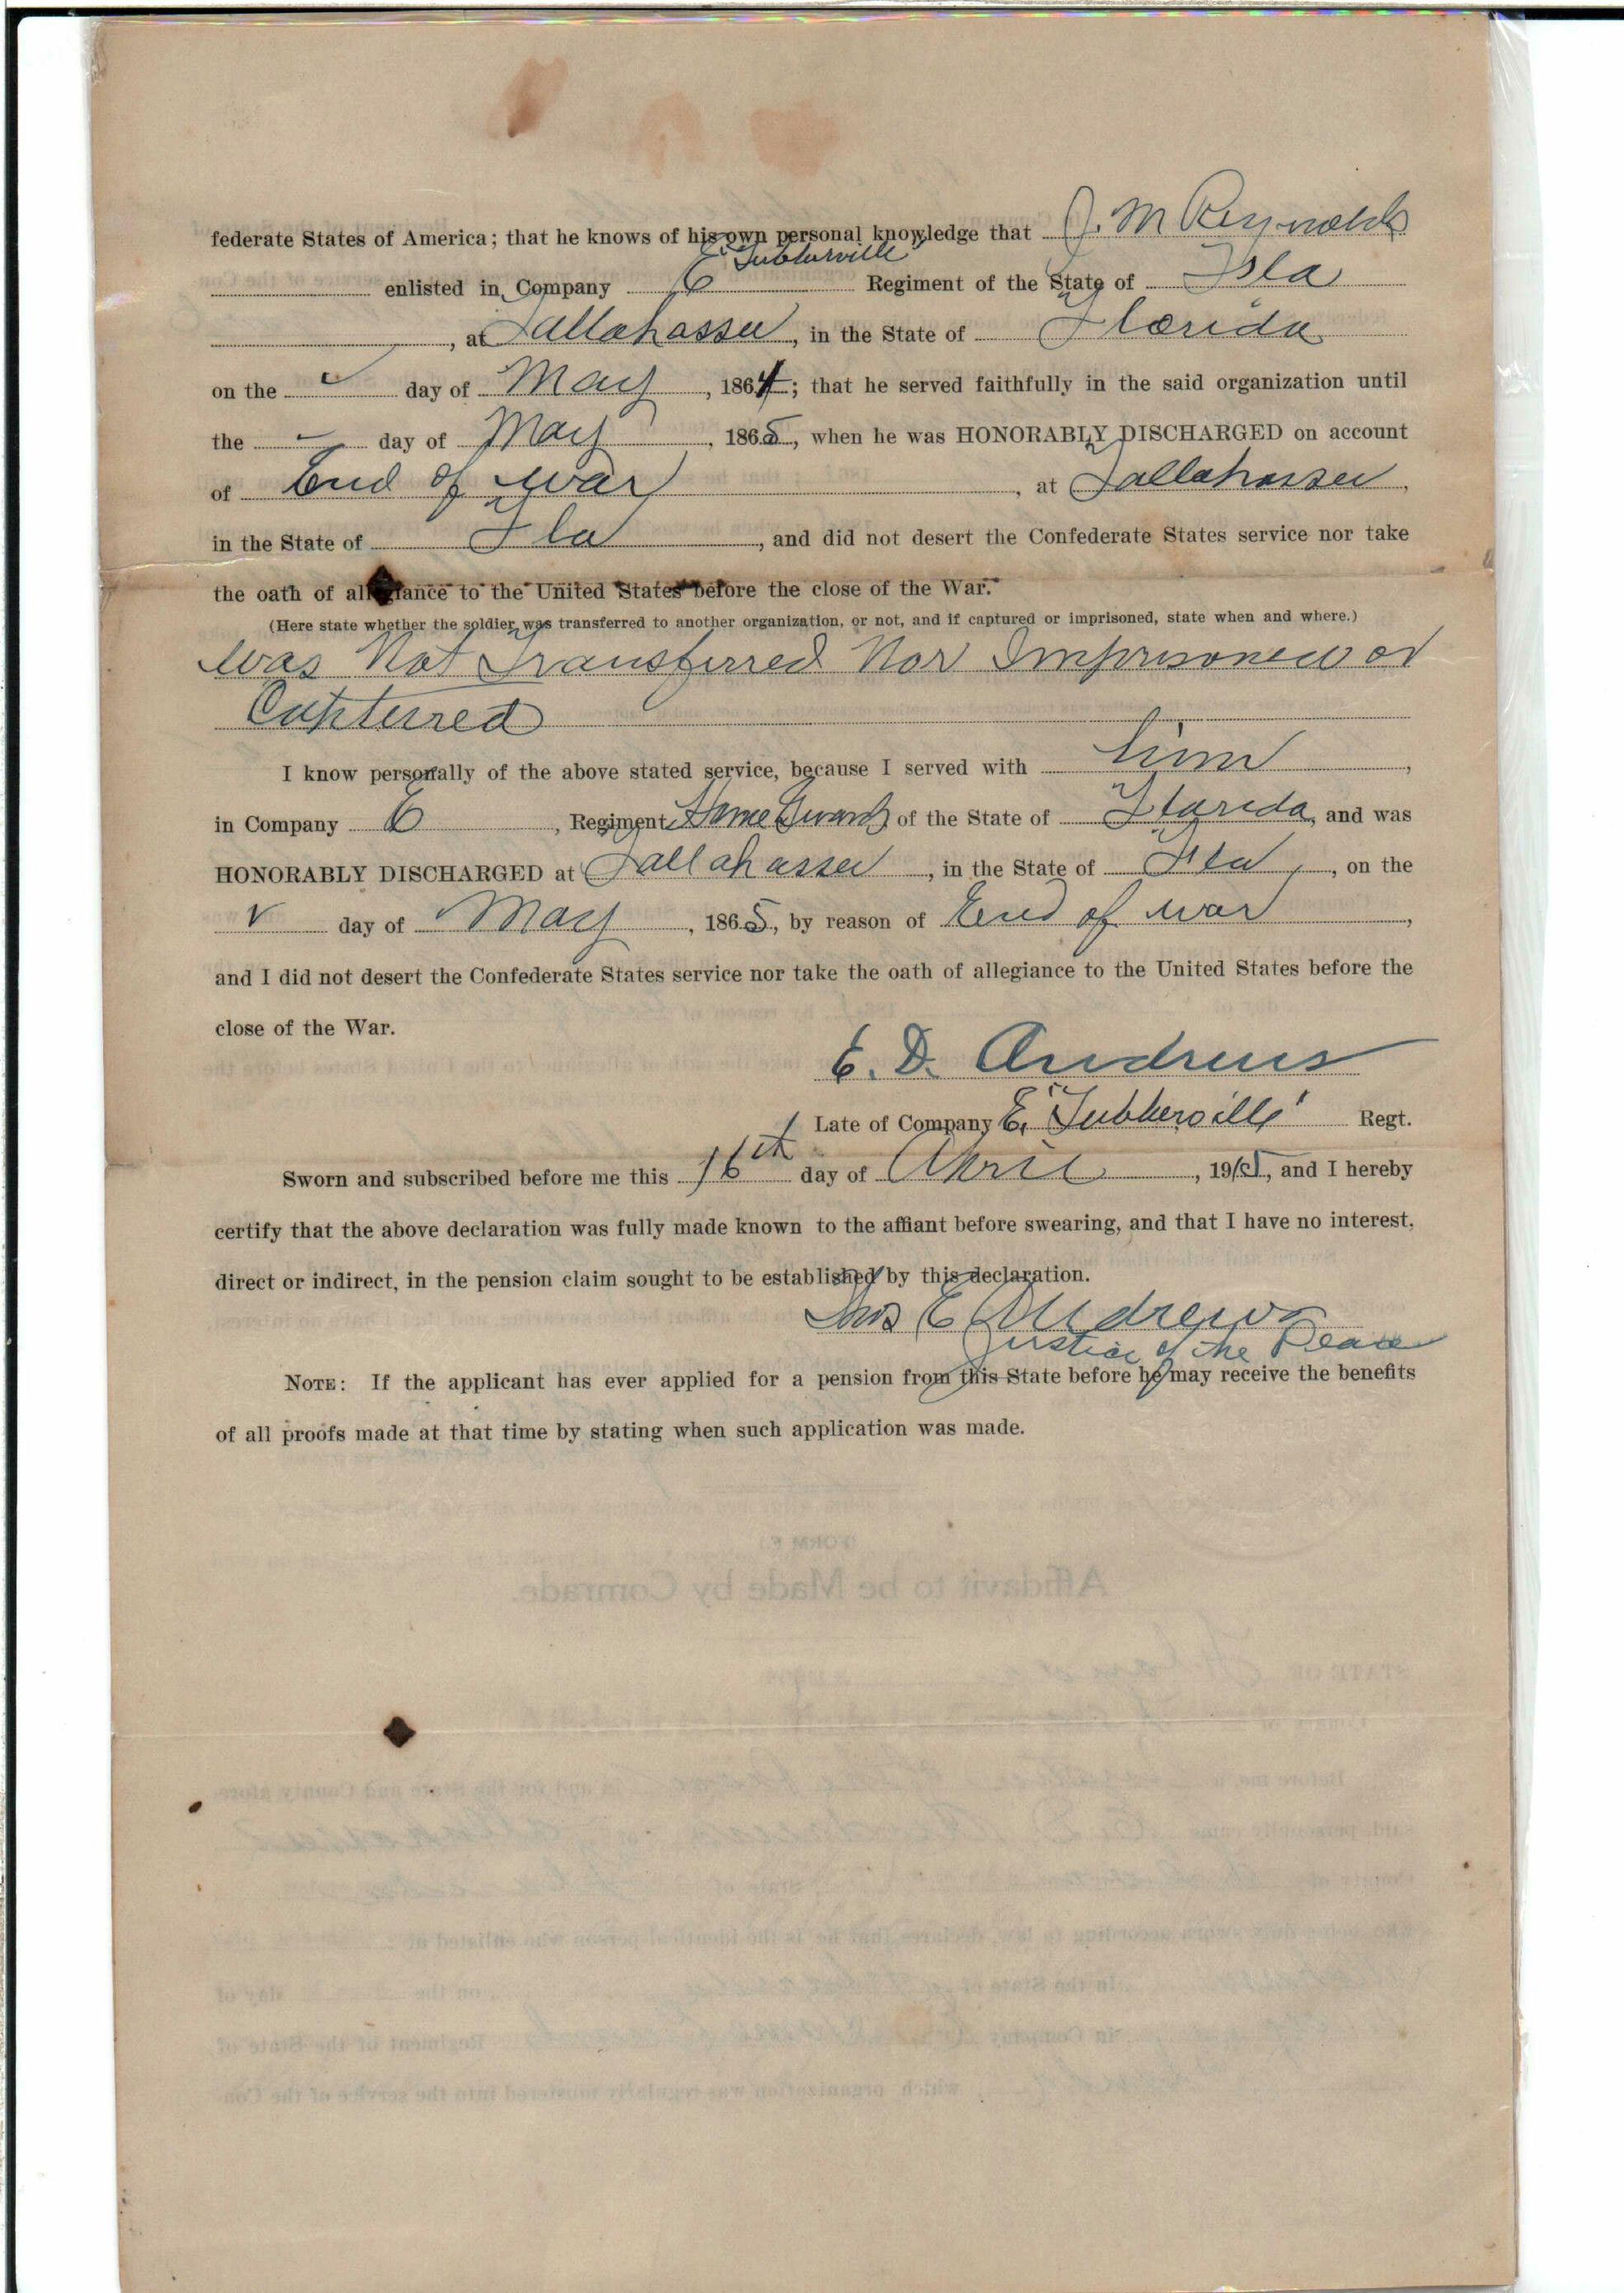 federate States of America; that he knows of his own personal knowledge that J. M Reynolds
E. Tubberville
enlisted in Company E Regiment of the State of Fla
, at Tallahassee, in the State of Florida
on the day of May, 1864; that he served faithfully in the said organization until
the day of May, 1865, when he was HONORABLY DISCHARGED on account
of End of war, at Tallahassee,
in the State of Fla, and did not desert the Confederate States service nor take
the oath of allegiance to the United States before the close of the War.
(Here state whether the soldier was transferred to another organization, or not, and if captured or imprisoned, state when and where.)
was Not Transferred Nor Imprisoned or
Capturred
I know personally of the above stated service, because I served with him,
in Company E, Regiment Home Guards of the State of Florida, and was
HONORABLY DISCHARGED at Tallahassee, in the State of Fla, on the
day of May, 1865, by reason of End of war,
and I did not desert the Confederate States service nor take the oath of allegiance to the United States before the
close of the War.
E. D. Andrews
Late of Company E, "Tubberville" Regt.
Sworn and subscribed before me this 16th day of April, 19, and I hereby
certify that the above declaration was fully made known to the affiant before swearing, and that I have no interest,
direct or indirect, in the pension claim sought to be established by this declaration.
E Andrews
Justice of the Peace
NOTE: If the applicant has ever applied for a pension from this State before he may receive the benefits
of all proofs made at that time by stating when such application was made.